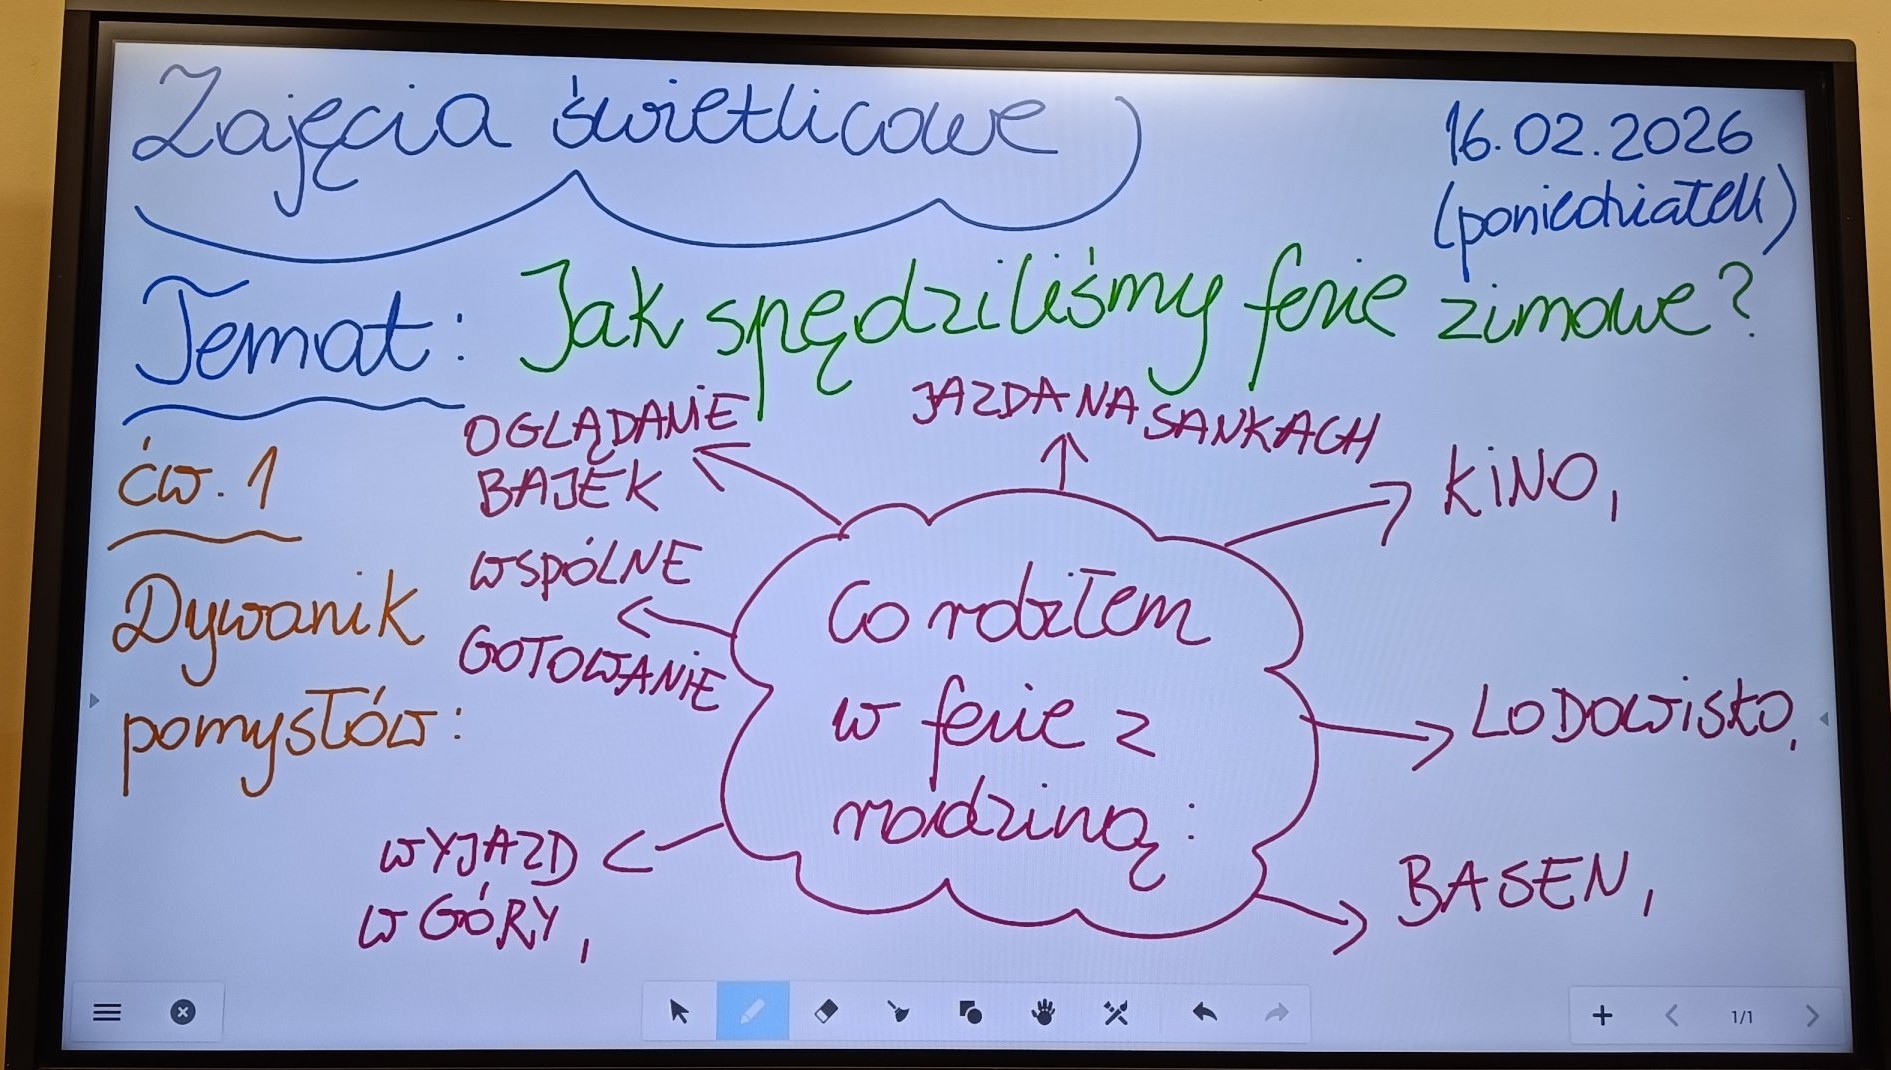 Zajęcia świetlicowe
16.02.2026
(poniedziałek)
Temat: Jak spędziliśmy ferie zimowe?
ćw. 1
Dywanik
pomysłów:
OGLĄDANIE
BAJEK
JAZDA NA SANKACH
KiNO,
WSPÓLNE
GOTOWANiE
Co robiłem
w ferie z
rodziną:
LODOWiSKO,
WYJAZD
W GÓRY,
BASEN,
1/1